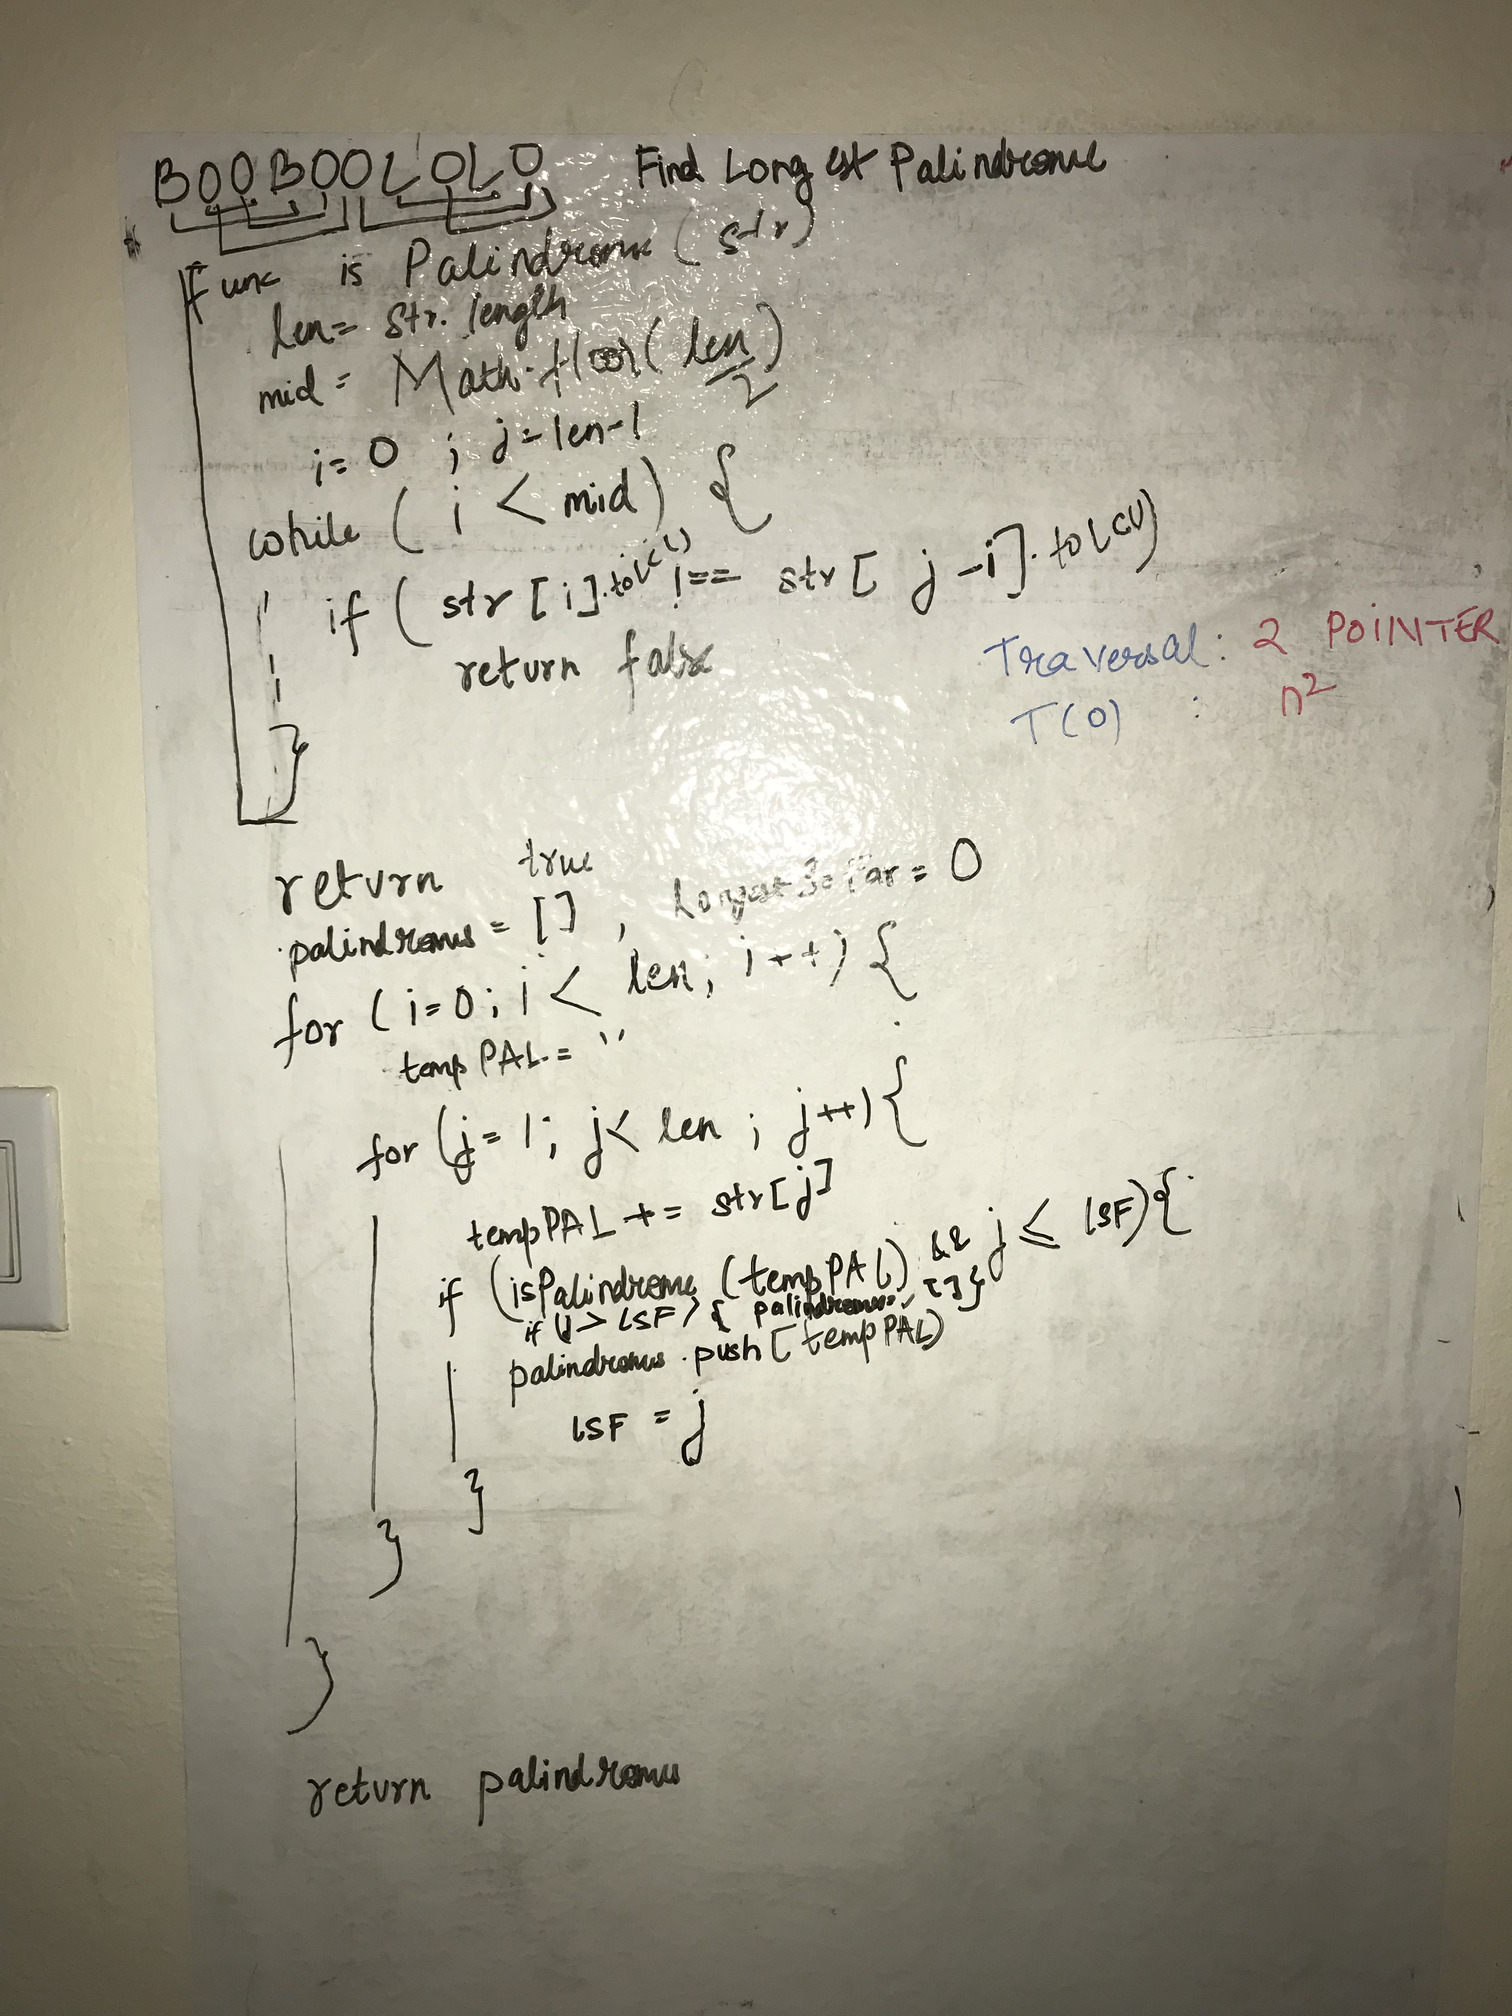 BOOBOOLOLO Find Longest Palindrome
func isPalindrome (str)
len = str.length
mid = Math.floor( len/2 )
i = 0 ; j = len-1
while ( i < mid ) {
if ( str [i].toLC() !== str[ j -i].toLC()
return false
Traversal: 2 POINTER
T(O) : n²
}
return true
palindromes = [] , LongestSoFar = 0
for ( i=0; i < len; i++) {
tempPAL = ''
for (j = 1; j< len ; j++){
tempPAL += str[j]
if (isPalindrome (tempPAL) && j ≤ LSF){
if (j > LSF) { palindromes = []}
palindromes.push(tempPAL)
LSF = j
}
}
}
return palindromes